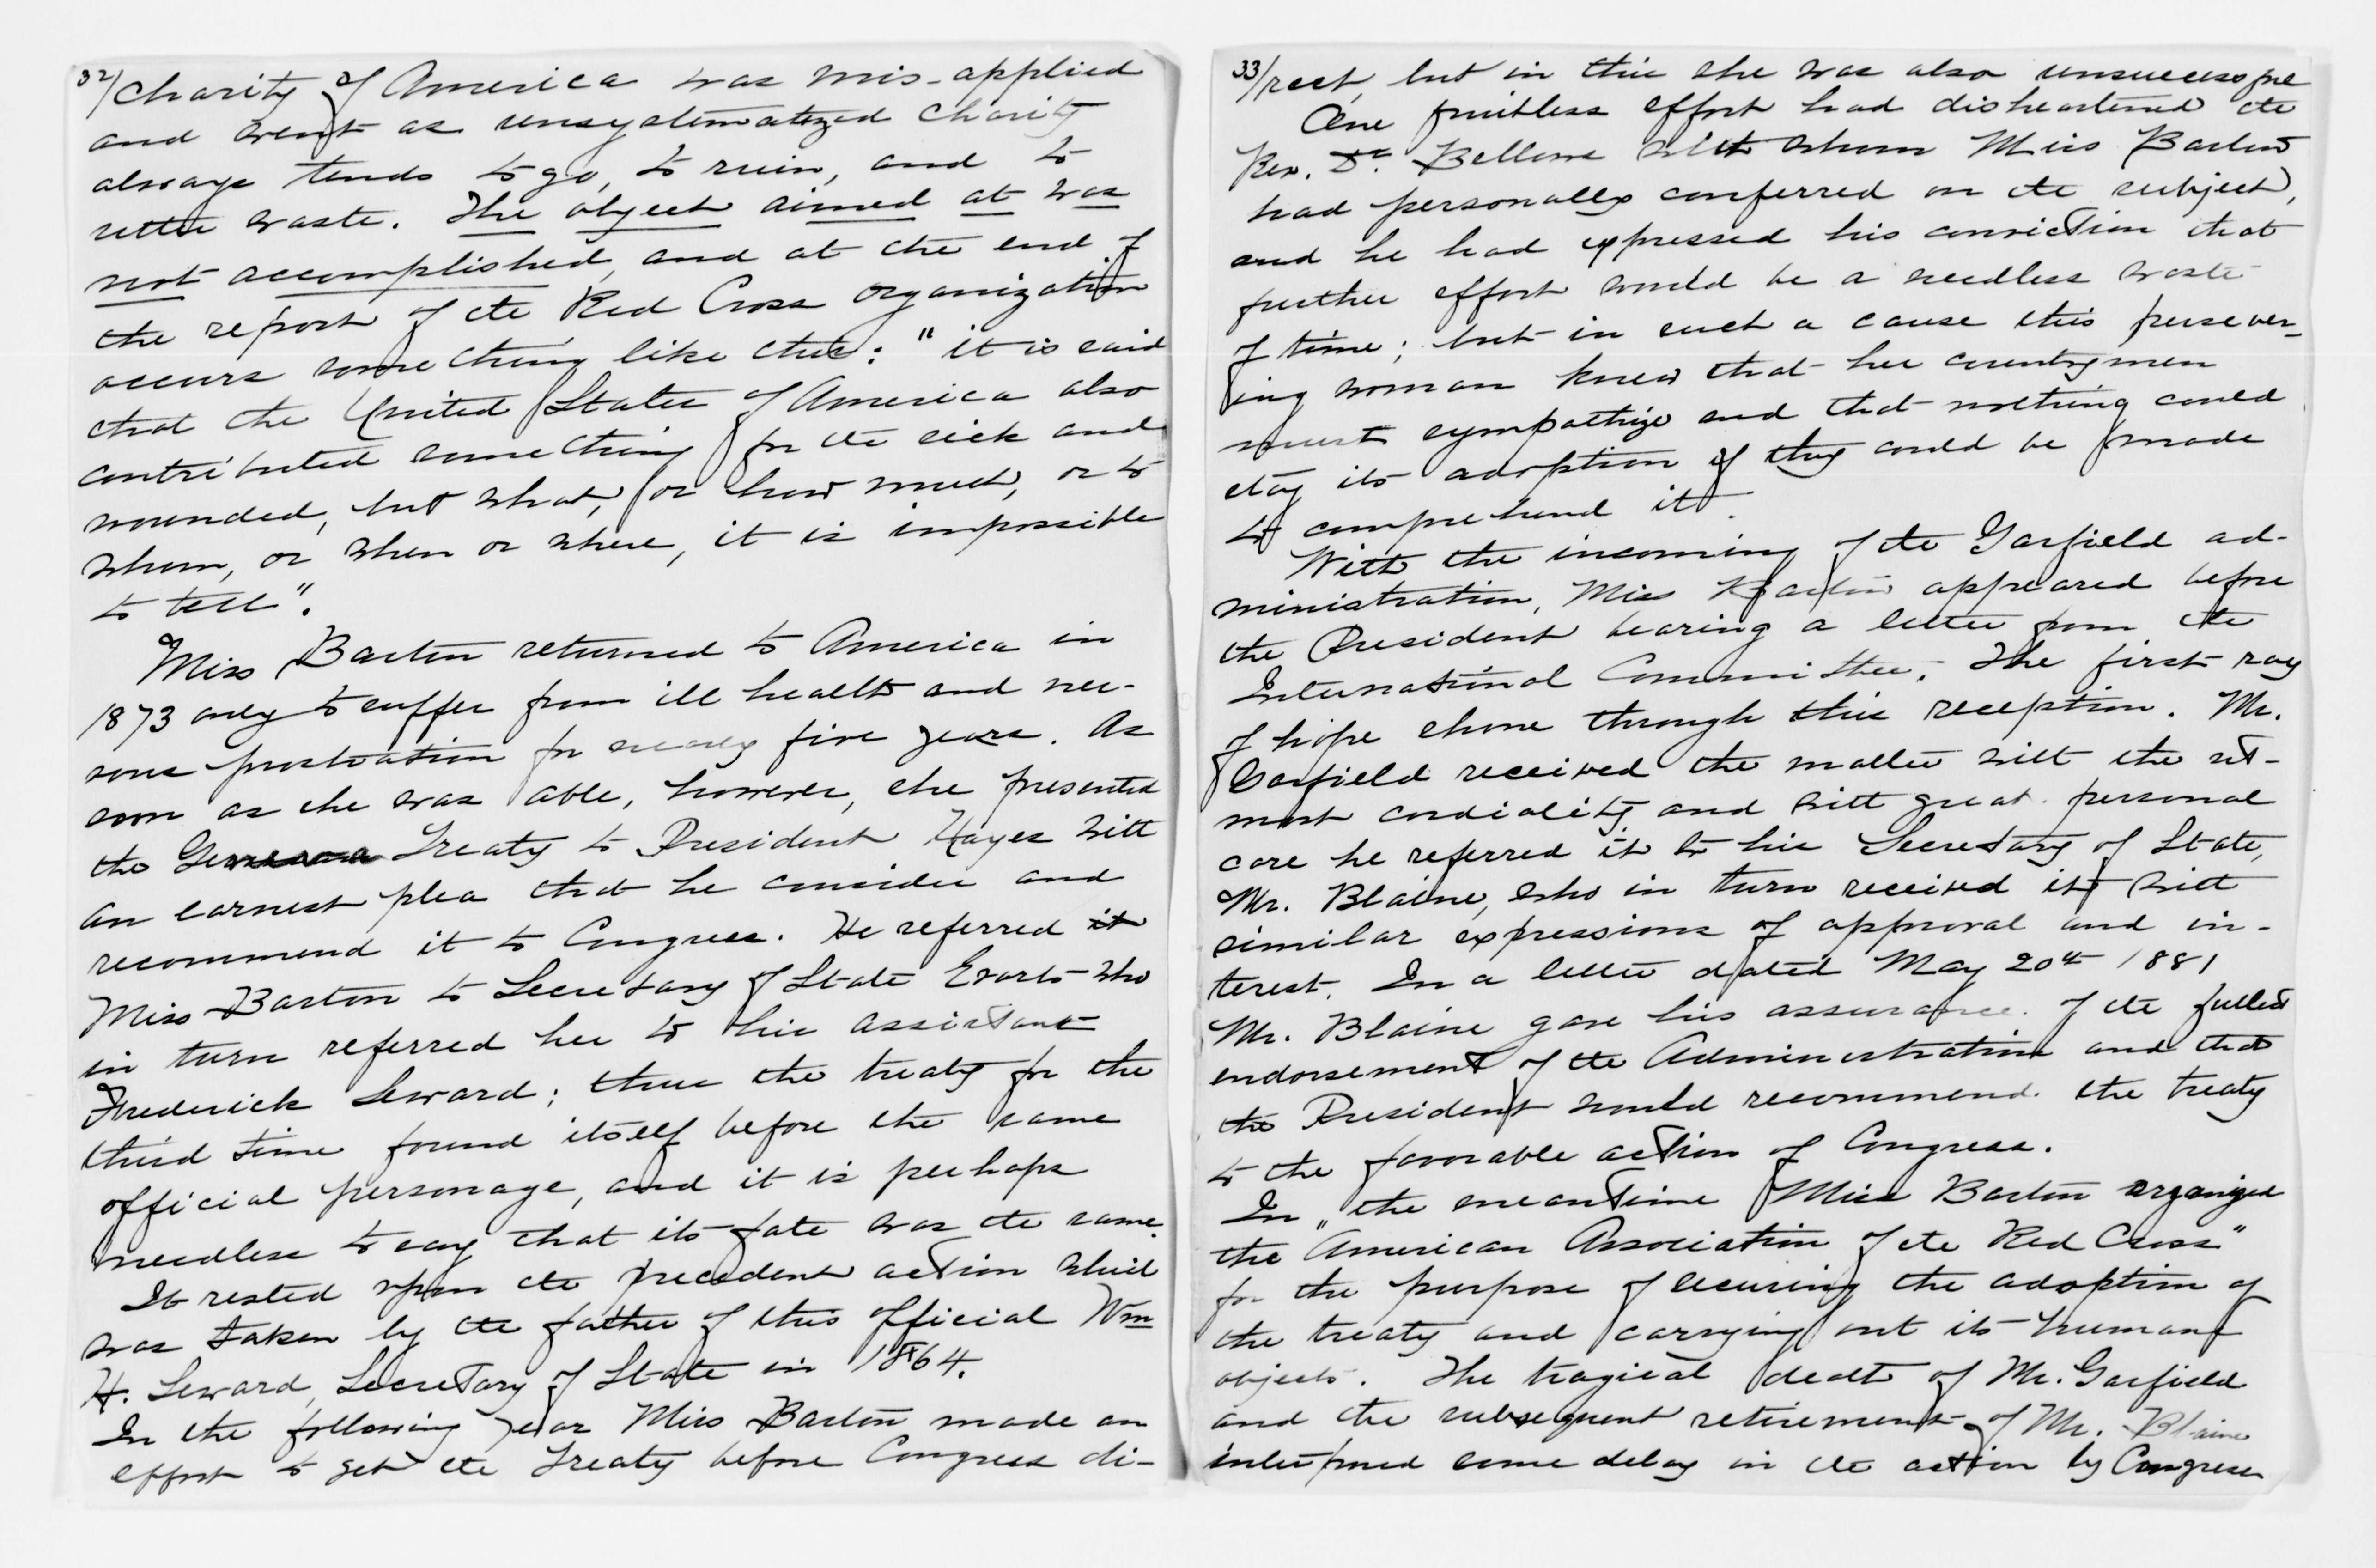 32/ charity of America was mis-applied
and went as unsystematized charity
always tends to go, to ruin, and to
utter waste. The object aimed at was
not accomplished, and at the end of
the report of the Red Cross organization
occurs something like this: "it is said
that the United States of America also
contributed something for the sick and
wounded, but what, or how much, or to
whom, or when or where, it is impossible
to tell".
Miss Barton returned to America in
1873 only to suffer from ill health and ner-
vous prostration for nearly five years. As
soon as she was able, however, she presented
the Geneva Treaty to President Hayes with
an earnest plea that he consider and
recommend it to Congress. He referred it
Miss Barton to Secretary of State Evarts who
in turn referred her to his assistant
Frederick Seward; thus the treaty for the
third time found itself before the same
official personage, and it is perhaps
needless to say that its fate was the same.
It rested upon the precedent action which
was taken by the father of this official Wm
H. Seward, Secretary of State in 1864.
In the following year Miss Barton made an
effort to get the Treaty before Congress di-
33/ rect, but in this she was also unsuccessful
One fruitless effort had disheartened the
Rev. Dr. Bellows with whom Miss Barton
had personally conferred on the subject,
and he had expressed his conviction that
further effort would be a needless waste
of time; but in such a cause this persever-
ing woman knew that her countrymen
must sympathize and that nothing could
stay its adoption if they could be made
to comprehend it.
With the incoming of the Garfield ad-
ministration, Miss Barton appeared before
the President bearing a letter from the
International Committee. The first ray
of hope shone through this reception. Mr.
Garfield received the matter with the ut-
most cordiality and with great personal
care he referred it to his Secretary of State,
Mr. Blaine, who in turn received it with
similar expressions of approval and in-
terest. In a letter dated May 20th 1881
Mr. Blaine gave his assurance of the fullest
endorsement of the Administration and that
the President would recommend the treaty
to the favorable action of Congress.
In the meantime Miss Barton organized
the "American Association of the Red Cross"
for the purpose of securing the adoption of
the treaty and carrying out its humane
objects. The tragical death of Mr. Garfield
and the subsequent retirement of Mr. Blaine
interposed some delay in the action by Congress